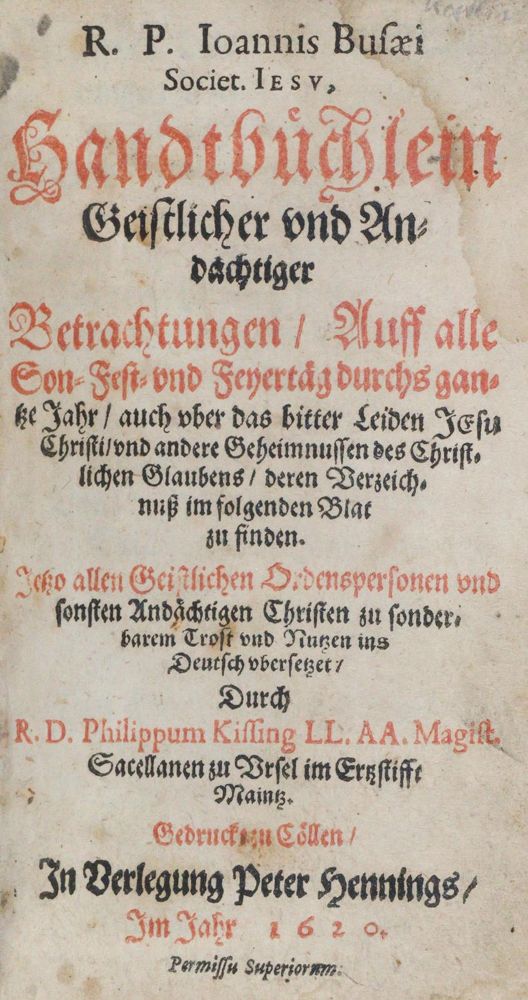 R. P. Ioannis Busæi
Societ. IESV,
Handtbüchlein
Geistlicher vnd An-
dächtiger
Betrachtungen / Auff alle
Son- Fest- vnd Feyertäg durchs gan-
tze Jahr / auch vber das bitter Leiden JEsu
Christi / vnd andere Geheimnussen des Christ-
lichen Glaubens / deren Verzeich-
nuß im folgenden Blat
zu finden.
Jetzo allen Geistlichen Ordenspersonen vnd
sonsten Andächtigen Christen zu sonder-
barem Trost vnd Nutzen ins
Deutsch vbersetzet /
Durch
R. D. Philippum Kissing LL. AA. Magist.
Sacellanen zu Vrsel im Ertzstifft
Maintz.
Gedruckt zu Cöllen /
In Verlegung Peter Hennings /
Im Jahr 1620.
Permissu Superiorum.